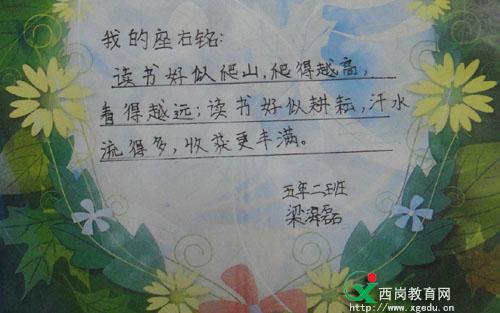 我的座右铭:
读书好似爬山,爬得越高,
看得越远;读书好似耕耘,汗水
流得多,收获更丰满。
五年二班
梁湃磊
西岗教育网
http://www.xgedu.cn